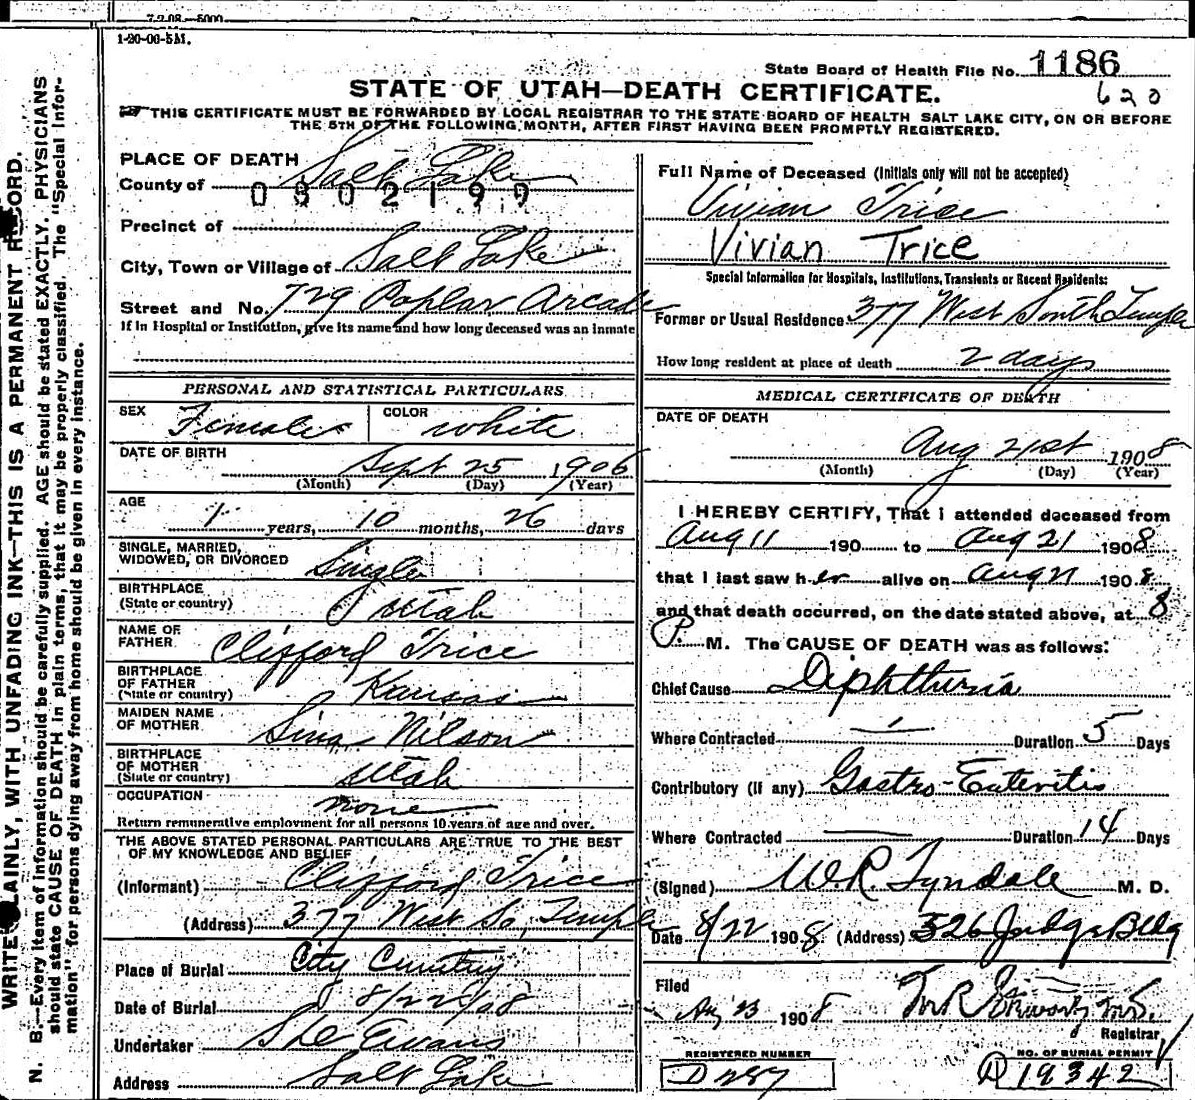 7-2-08—5000
1-20-06-5M.
State Board of Health File No. 1186
620
STATE OF UTAH—DEATH CERTIFICATE.
THIS CERTIFICATE MUST BE FORWARDED BY LOCAL REGISTRAR TO THE STATE BOARD OF HEALTH SALT LAKE CITY, ON OR BEFORE
THE 5TH OF THE FOLLOWING MONTH, AFTER FIRST HAVING BEEN PROMPTLY REGISTERED.
WRITE PLAINLY, WITH UNFADING INK—THIS IS A PERMANENT RECORD.
N. B.—Every item of information should be carefully supplied. AGE should be stated EXACTLY. PHYSICIANS
should state CAUSE OF DEATH in plain terms, that it may be properly classified. The "Special Infor-
mation" for persons dying away from home should be given in every instance.
PLACE OF DEATH
County of Salt Lake
0802199
Precinct of
City, Town or Village of Salt Lake
Street and No. 729 Poplar Arcade
If in Hospital or Institution, give its name and how long deceased was an inmate
PERSONAL AND STATISTICAL PARTICULARS
SEX Female COLOR white
DATE OF BIRTH
Sept 25 1906
(Month) (Day) (Year)
AGE
1 years, 10 months, 26 days
SINGLE, MARRIED,
WIDOWED, OR DIVORCED Single
BIRTHPLACE
(State or country) Utah
NAME OF
FATHER Clifford Trice
BIRTHPLACE
OF FATHER
(State or country) Kansas
MAIDEN NAME
OF MOTHER Sina Nilson
BIRTHPLACE
OF MOTHER
(State or country) Utah
OCCUPATION none
Return remunerative employment for all persons 10 years of age and over.
THE ABOVE STATED PERSONAL PARTICULARS ARE TRUE TO THE BEST
OF MY KNOWLEDGE AND BELIEF
(Informant) Clifford Trice
(Address) 377 West So. Temple
Place of Burial City Cemetery
Date of Burial 8/22/08
Undertaker Evans
Address Salt Lake
Full Name of Deceased (Initials only will not be accepted)
Vivian Trice
Vivian Trice
Special Information for Hospitals, Institutions, Transients or Recent Residents:
Former or Usual Residence 377 West South Temple
How long resident at place of death 2 days
MEDICAL CERTIFICATE OF DEATH
DATE OF DEATH
Aug 21st 1908
(Month) (Day) (Year)
I HEREBY CERTIFY, That I attended deceased from
Aug 11 190 to Aug 21 1908
that I last saw her alive on Aug 21 1908
and that death occurred, on the date stated above, at 8
P. M. The CAUSE OF DEATH was as follows:
Chief Cause Diphtheria
Where Contracted Duration 5 Days
Contributory (if any) Gastro-Enteritis
Where Contracted Duration 14 Days
(Signed) W.R. Tyndale M. D.
Date 8/22 1908 (Address) 326 Judge Bldg
Filed
Aug 23 1908
Registrar
REGISTERED NUMBER
D 287
NO. OF BURIAL PERMIT
D 19342